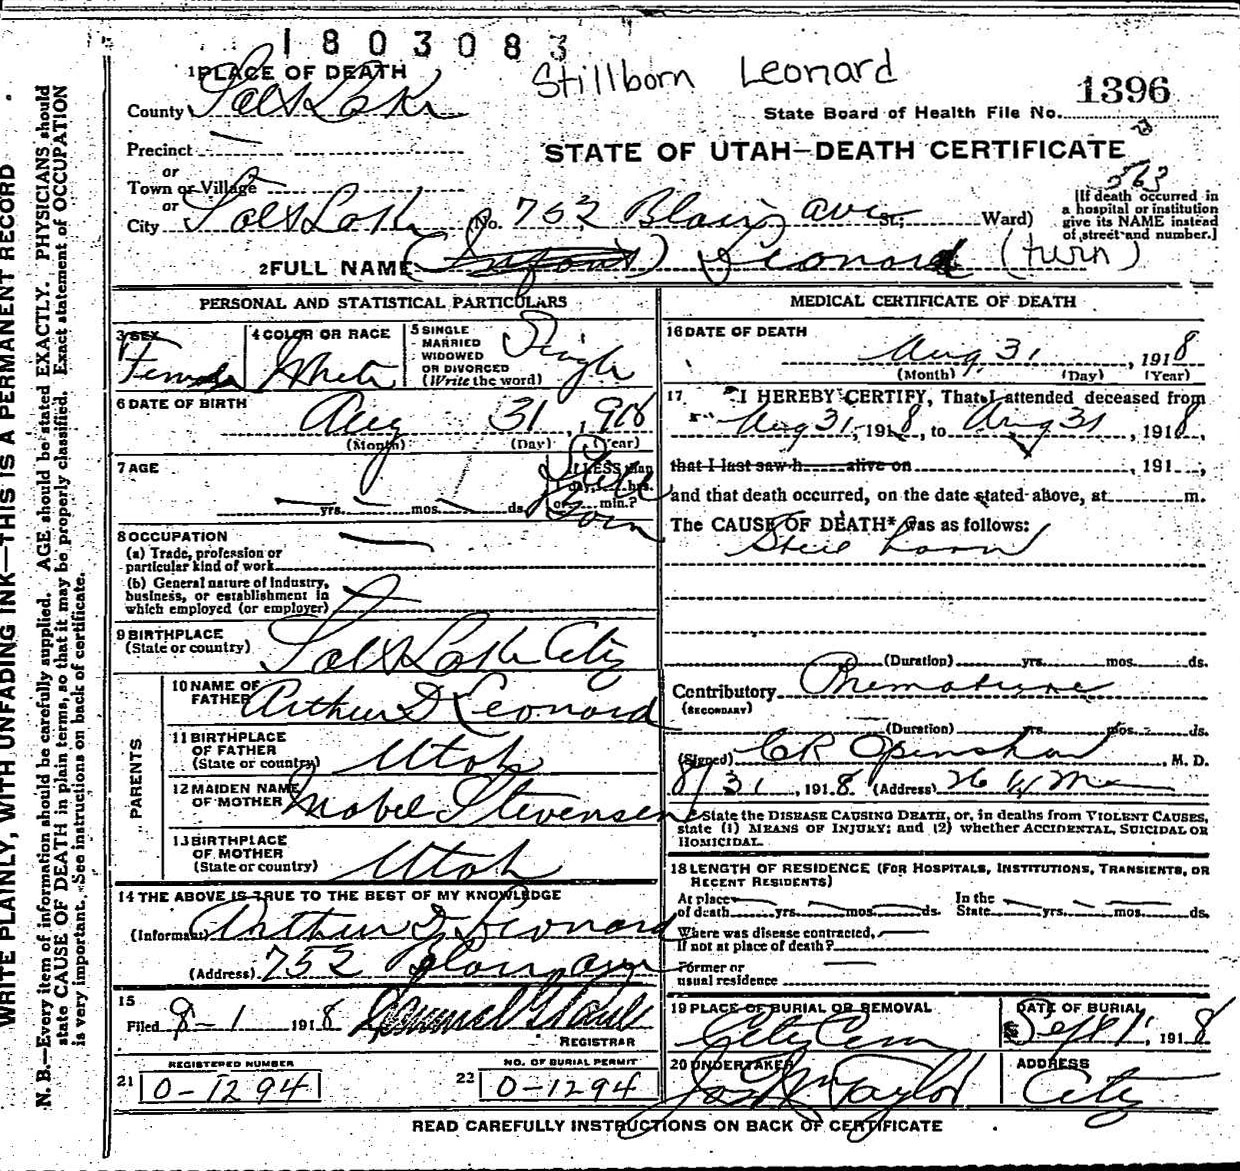 1803083
Stillborn Leonard
1396
1 PLACE OF DEATH
County Salt Lake
State Board of Health File No.
Precinct
STATE OF UTAH—DEATH CERTIFICATE
or
Town or Village
or
563
City Salt Lake No. 752 Blair ave St; Ward)
[If death occurred in
a hospital or institution
give its NAME instead
of street and number.]
2 FULL NAME (Infant) Leonard (twin)
PERSONAL AND STATISTICAL PARTICULARS
3 SEX
Female
4 COLOR OR RACE
White
5 SINGLE
MARRIED
WIDOWED
OR DIVORCED
(Write the word)
Single
6 DATE OF BIRTH
Aug 31, 1918
(Month) (Day) (Year)
7 AGE
If LESS than
day, hrs.
or min.?
yrs. mos. ds.
Still
Born
8 OCCUPATION
(a) Trade, profession or
particular kind of work
(b) General nature of Industry,
business, or establishment in
which employed (or employer)
9 BIRTHPLACE
(State or country) Salt Lake City
PARENTS
10 NAME OF
FATHER Arthur D Leonard
11 BIRTHPLACE
OF FATHER
(State or country) Utah
12 MAIDEN NAME
OF MOTHER Mabel Stevensen
13 BIRTHPLACE
OF MOTHER
(State or country) Utah
14 THE ABOVE IS TRUE TO THE BEST OF MY KNOWLEDGE
(Informant) Arthur D. Leonard
(Address) 752 Blair ave
15
Filed 9-1 1918
REGISTRAR
REGISTERED NUMBER
21 0-1294
NO. OF BURIAL PERMIT
22 0-1294
MEDICAL CERTIFICATE OF DEATH
16 DATE OF DEATH
Aug 31, 1918
(Month) (Day) (Year)
17 I HEREBY CERTIFY, That I attended deceased from
Aug 31, 1918, to Aug 31, 1918,
that I last saw h alive on , 191 ,
and that death occurred, on the date stated above, at m.
The CAUSE OF DEATH* was as follows:
Still born
(Duration) yrs. mos. ds.
Contributory Premature
(SECONDARY)
(Duration) yrs. mos. ds.
(Signed) CR Openshaw, M. D.
8/31, 1918 (Address)
* State the DISEASE CAUSING DEATH, or, in deaths from VIOLENT CAUSES,
state (1) MEANS OF INJURY; and (2) whether ACCIDENTAL, SUICIDAL OR
HOMICIDAL.
18 LENGTH OF RESIDENCE (FOR HOSPITALS, INSTITUTIONS, TRANSIENTS, OR
RECENT RESIDENTS)
At place
of death yrs. mos. ds.
In the
State yrs. mos. ds.
Where was disease contracted,
If not at place of death?
Former or
usual residence
19 PLACE OF BURIAL OR REMOVAL
City Cem
DATE OF BURIAL
Sept 1, 1918
20 UNDERTAKER
Jos Wm Taylor
ADDRESS
City
READ CAREFULLY INSTRUCTIONS ON BACK OF CERTIFICATE
WRITE PLAINLY, WITH UNFADING INK—THIS IS A PERMANENT RECORD
N. B.—Every item of information should be carefully supplied. AGE should be stated EXACTLY. PHYSICIANS should
state CAUSE OF DEATH in plain terms, so that it may be properly classified. Exact statement of OCCUPATION
is very important. See instructions on back of certificate.